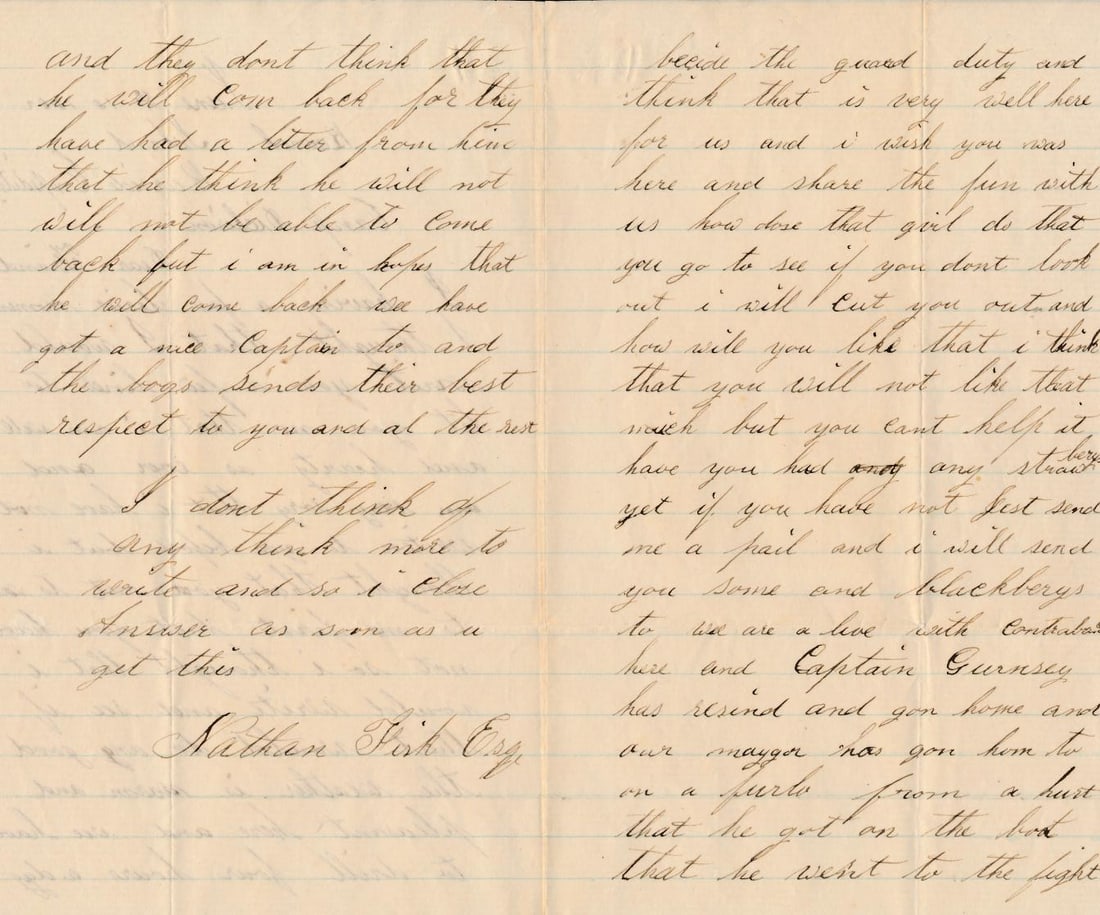 and they dont think that
he will com back for they
have had a letter from him
that he think he will not
will not be able to come
back but i am in hopes that
he will come back we have
got a nice Captain to and
the boys sends their best
respect to you and al the rest
I dont think of
any think more to
write and so i close
Answer as soon as u
get this
Nathan Fisk Esq
becide the guard duty and
think that is very well here
for us and i wish you was
here and share the fun with
us how dose that girl do that
you go to see if you dont look
out i will cut you out and
how will you like that i think
that you will not like that
much but you cant help it
have you had any any strawberys
yet if you have not Jest send
me a pail and i will send
you some and blackberys
to we are a live with contraban
here and Captain Gurnsey
has resind and gon home and
our maygor has gon hom to
on a furlo from a hurt
that he got on the boat
that he went to the fight